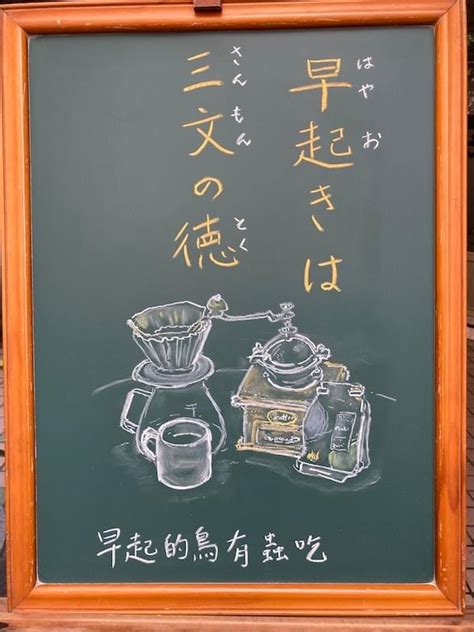 早起きは
はやお
三文の徳
さんもんとく
早起的鳥有蟲吃